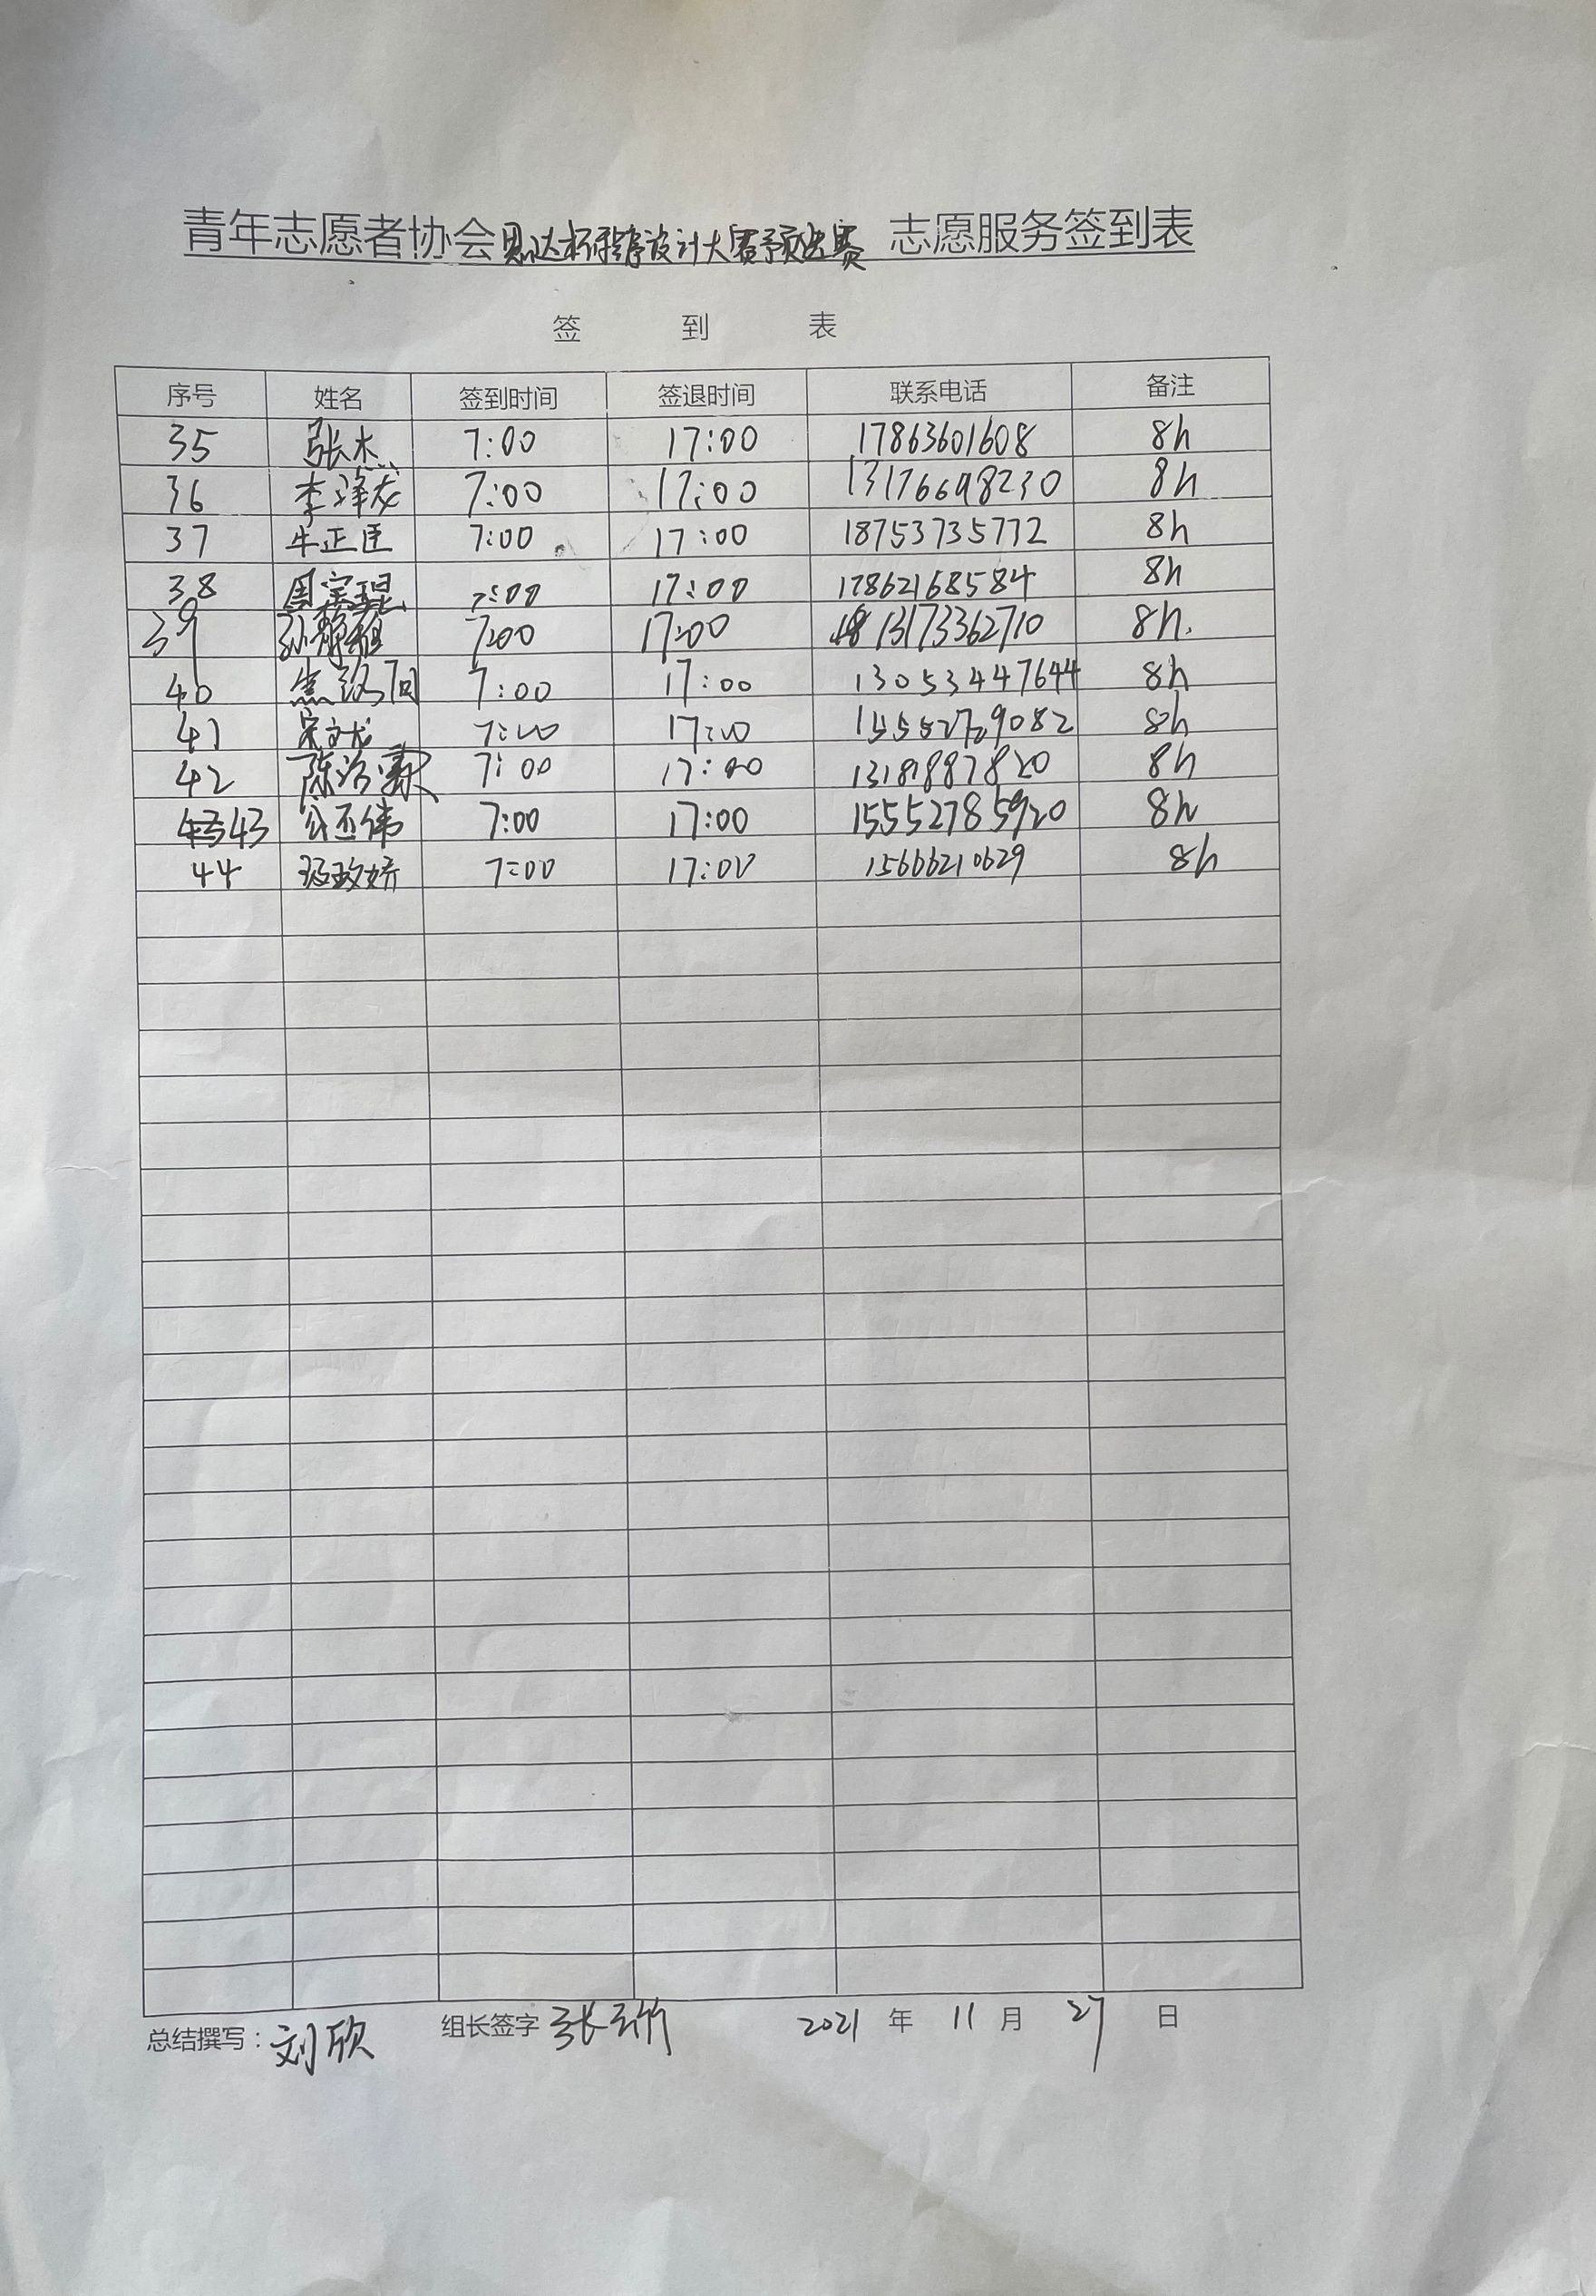 青年志愿者协会思达杯程序设计大赛预选赛 志愿服务签到表
签 到 表
序号 姓名 签到时间 签退时间 联系电话 备注
35 张杰 7:00 17:00 17863601608 8h
36 李泽龙 7:00 17:00 13176698230 8h
37 牛正臣 7:00 17:00 18753735772 8h
38 周宝琨 7:00 17:00 17862168584 8h
39 孙静雅 7:00 17:00 13173362710 8h.
40 焦 7:00 17:00 13053447644 8h
41 宋文龙 7:00 17:00 8h
42 陈 7:00 17:00 13181887820 8h
43 公丕伟 7:00 17:00 15552785920 8h
44 7:00 17:00 15606210629 8h
总结撰写：刘欣 组长签字 张 2021 年 11 月 27 日